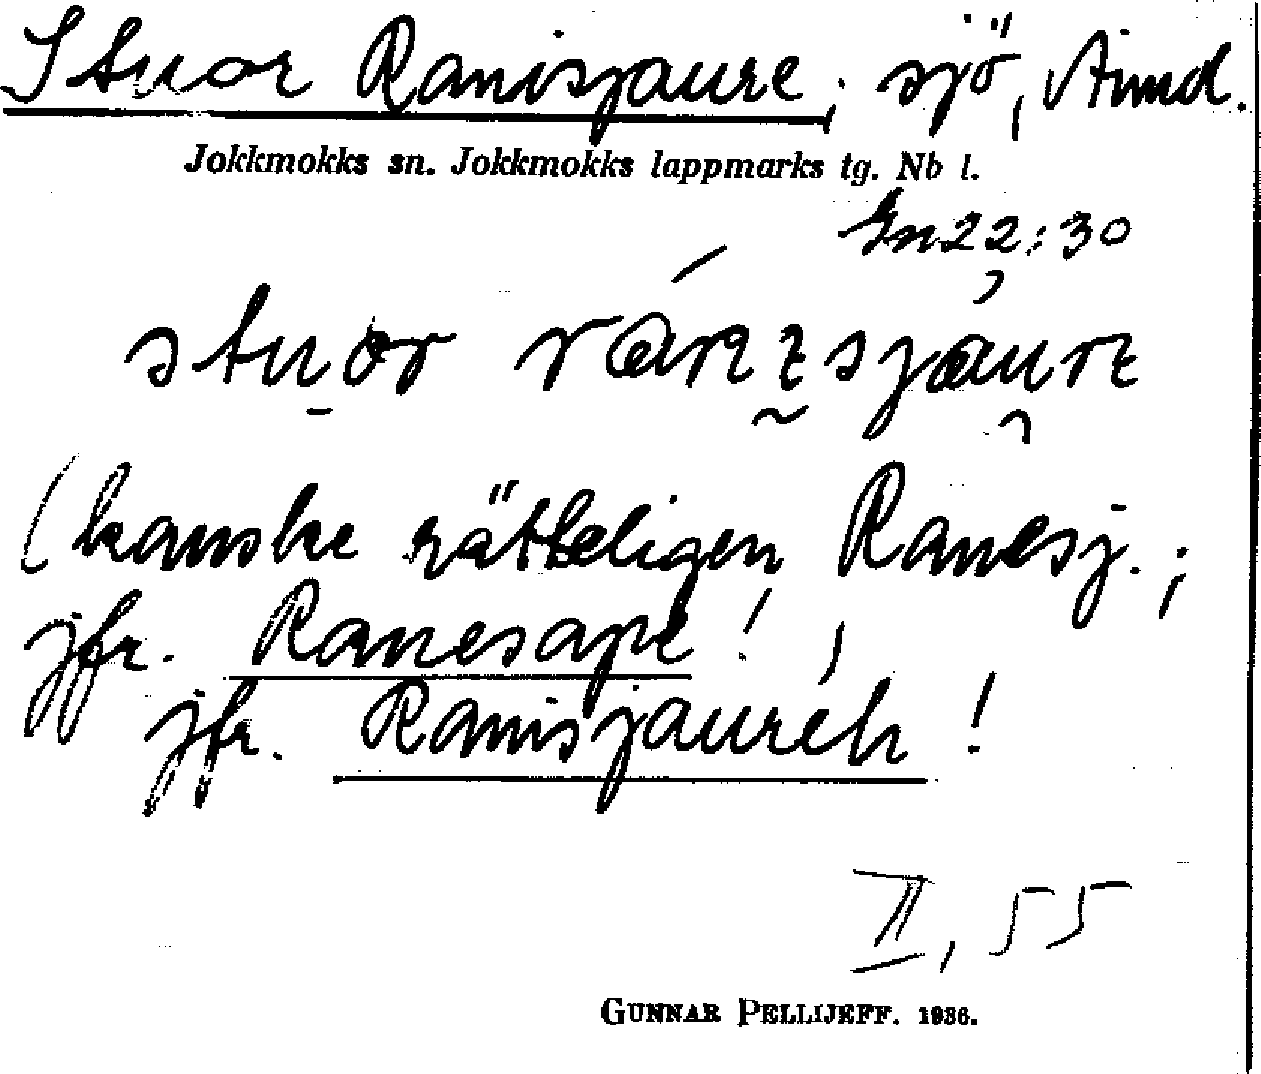 Stuor Ranisjaure; sjö,
Jokkmokks sn. Jokkmokks lappmarks tg. Nb l.
Gn 22:30
stuor
(kanske rätteligen Ranesj.;
jfr. Ranesape!,
jfr. Ranisjaureh!
II, 55
GUNNAR PELLIJEFF. 1936.